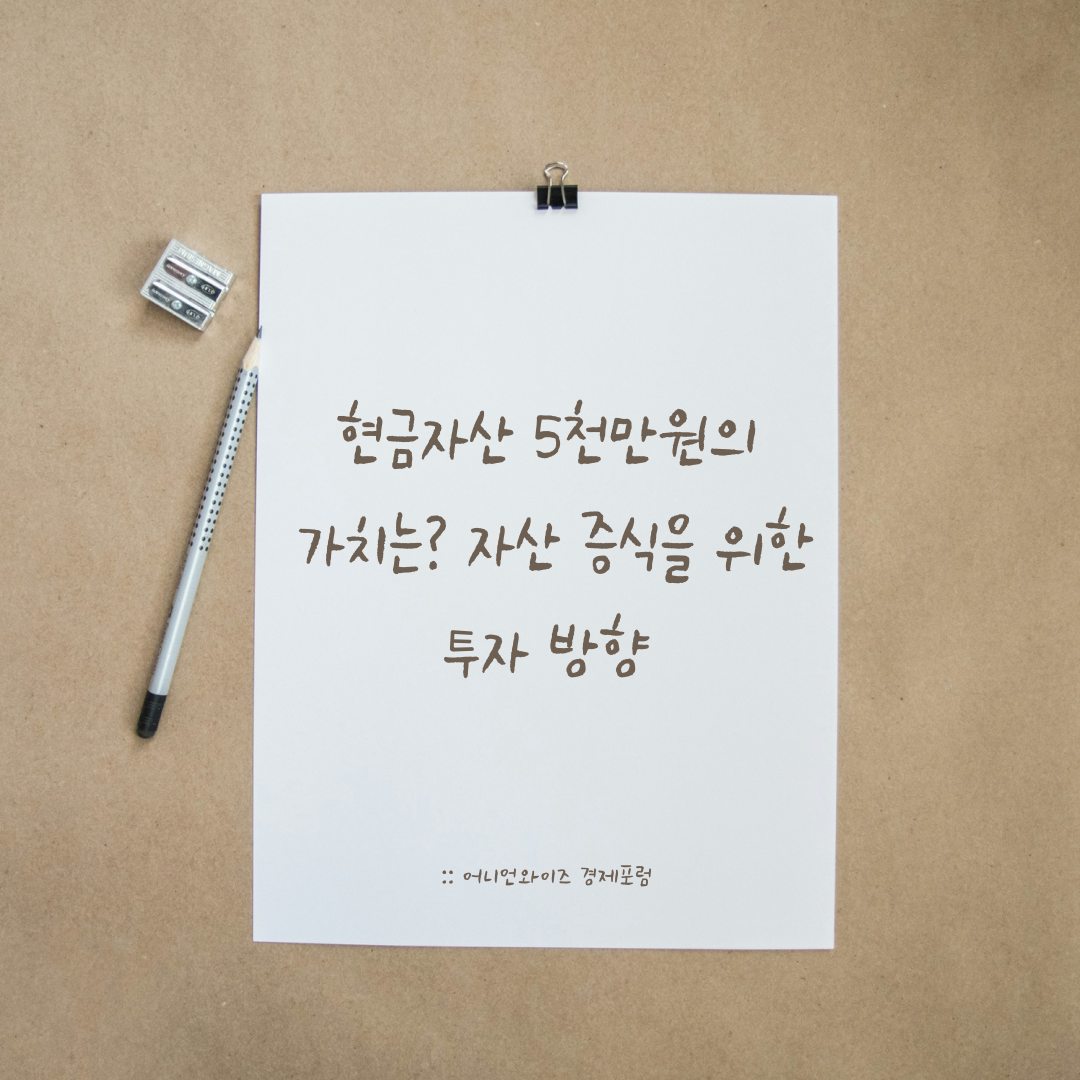 현금자산 5천만원의
가치는? 자산 증식을 위한
투자 방향
:: 어니언와이즈 경제포럼